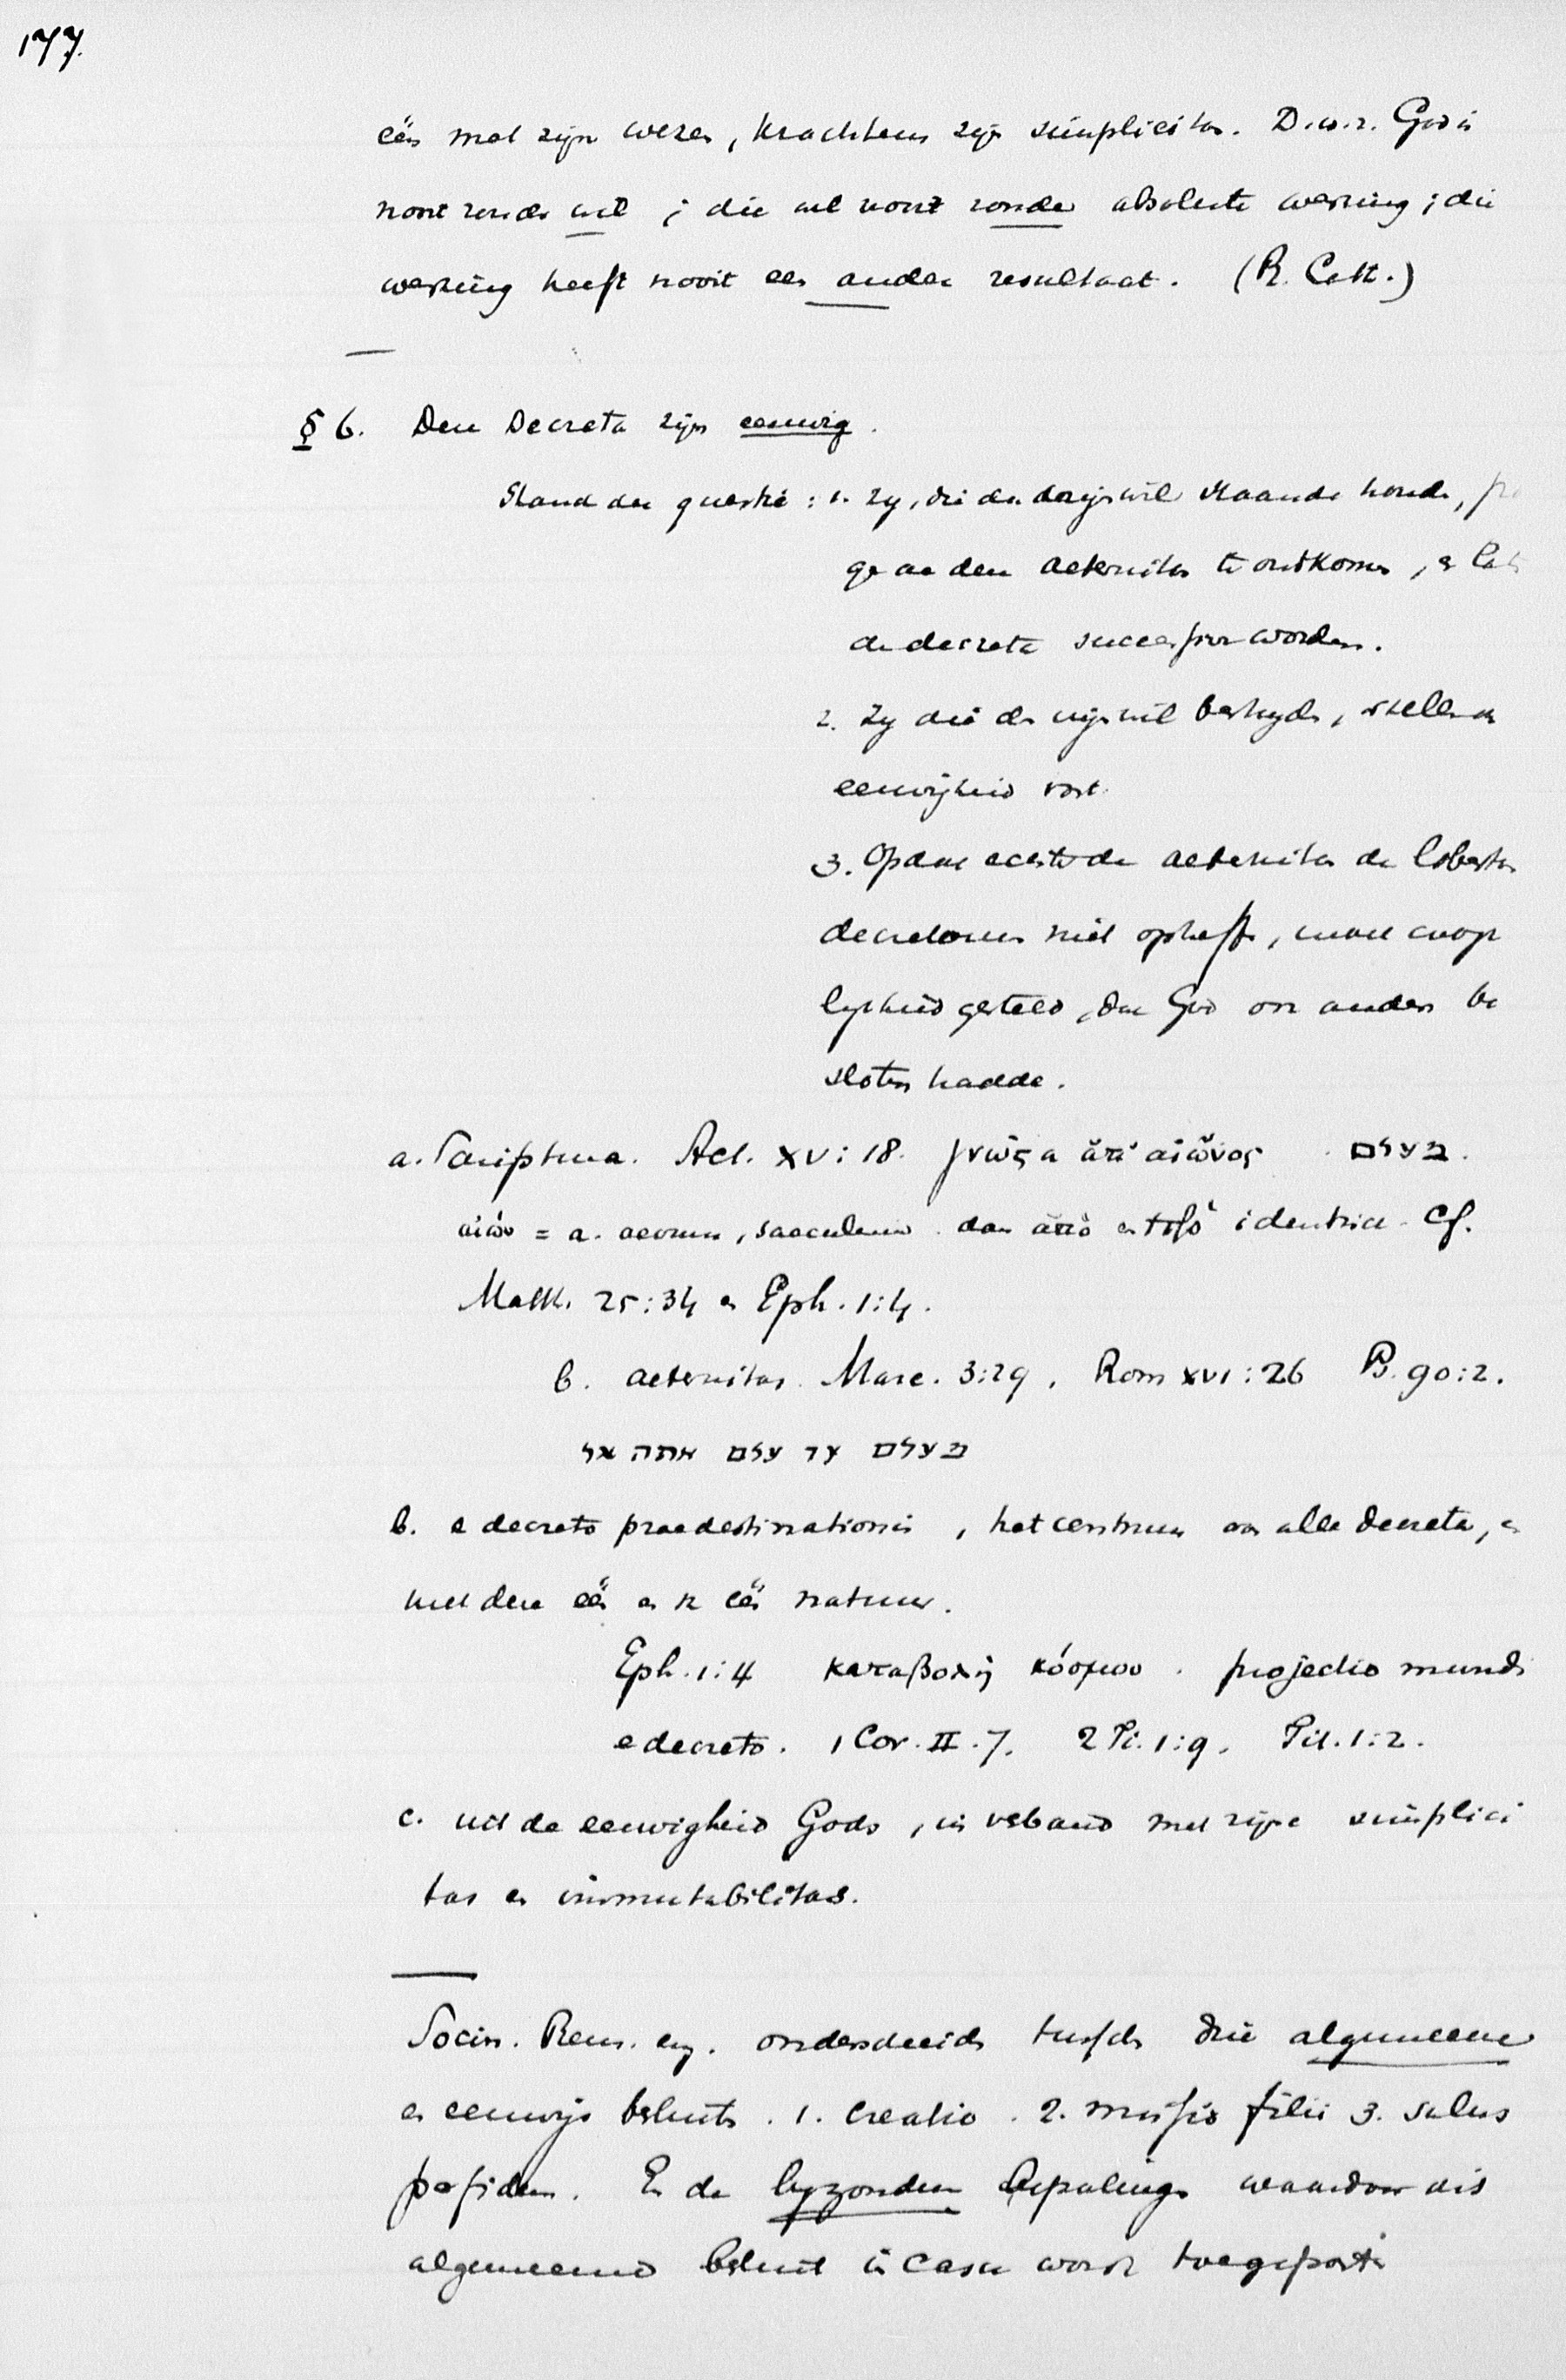 177.
één met zijn wezen, krachtens zijn simplicitas. D.w.z. God is
nooit zonder wil; die wil nooit zonder absolute werking; die
werking heeft nooit een ander resultaat. (R. Cath.)
§ 6. Deze Decreta zijn eeuwig.
Stand der questie: 1. Zij, die den vrijen wil staande houden,
aan deze aeternitas te ontkomen, en
de decreta successive worden.
2. Zij die den vrijen wil bestrijden, stellen de
eeuwigheid vast.
3. Opdat echter de aeternitas de libertas
decretorum niet opheffe, moet mogelijkheid
gesteld, dat God ook anders be
sloten hadde.
a. Scriptura. Act. XV: 18. γνῶςα ἀπ' αἰῶνος מעלם.
αἰών = a. aevum, saeculum. dan ἀπὸ en πρὸ identisch. Cf.
Matth. 25:34 en Eph. 1:4.
b. aeternitas. Marc. 3:29, Rom XVI: 26 Ps. 90:2.
מעלם עד עלם אתה אל
b. e decreto praedestinationis, het centrum van alle decreta, en
met deze één en v. één natuur.
Eph. 1:4 καταβολή κόσμου. projectio mundi
e decreto. 1 Cor. II. 7. 2 Ti. 1:9. Tit. 1:2.
c. uit de eeuwigheid Gods, in verband met zijne simplici
tas en immutabilitas.
Socin. Rem. en. onderscheiden tusschen drie algemeene
en eeuwige besluiten. 1. Creatio. 2. missio filii 3. salus
per fidem. En de byzondere bepalingen waardoor dis
algemeene besluit in casu wordt toegepast.